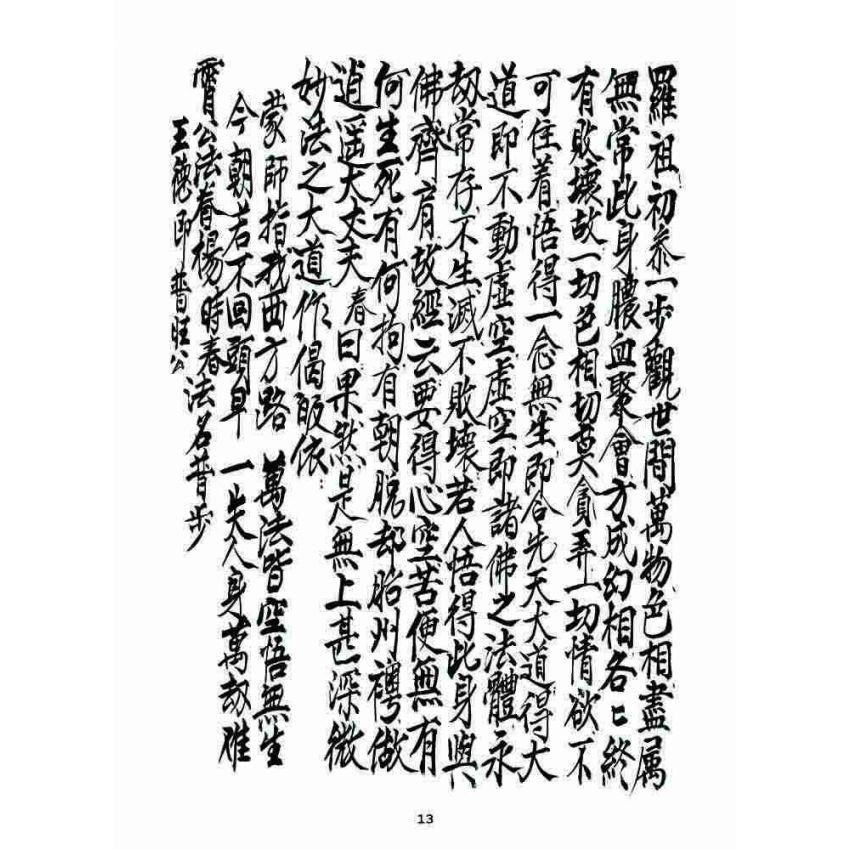 羅祖初參一步觀世間萬物色相盡属
無常此身膿血聚會方成幻相各〻終
有敗壞故一切色相切莫貪弄一切情欲不
可住着悟得一念無生即合先天大道得大
道即不動虛空虛空即諸佛之法體永
劫常存不生滅不敗壞若人悟得此身與
佛齊肩故經云要得心空苦便無有
何生死有何拘有朝脫却胎州襖做
逍遥大丈夫 春曰果然是無上甚深微
妙法之大道作偈皈依
蒙師指我西方路 萬法皆空悟無生
今朝若不回頭早 一失人身萬劫难
霄公法春楊時春法名普步
王德即普旺公
13